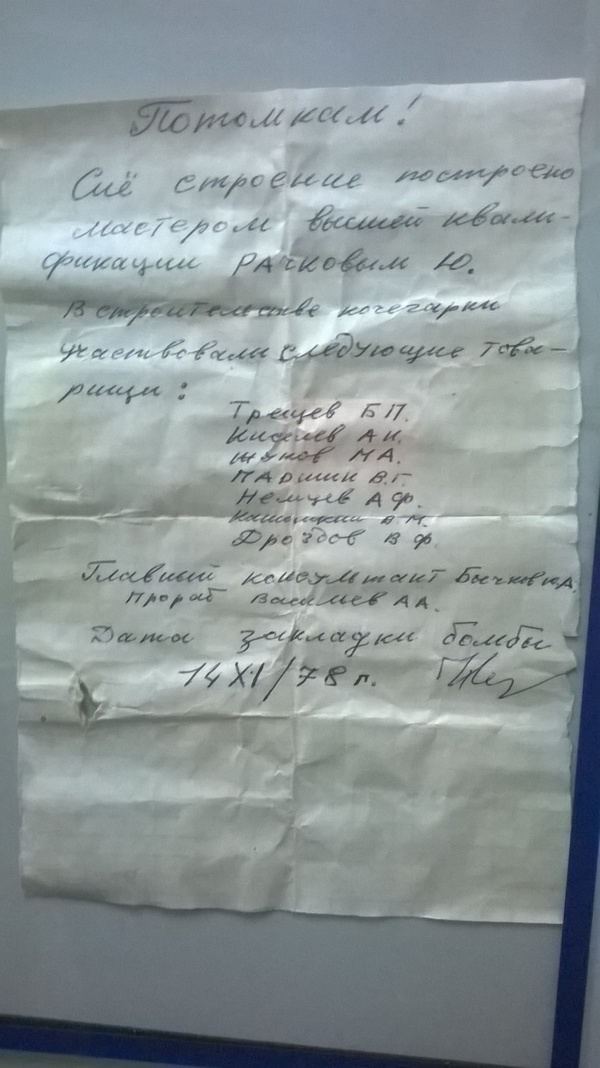 Потомкам!
Сиё строение построено
мастером высшей квали-
фикации РАчковым Ю.
В строительстве кочегарки
участвовали следующие това-
рищи:
Трещев Б П.
Киселев А И.
Жуков М А.
ПАршин В. Г.
Немцев А Ф.
В М.
Дроздов В Ф.
Главный консультант Бычков Ю А.
Прораб Васильев А А.
Дата закладки бомбы
14 XI/78 г.